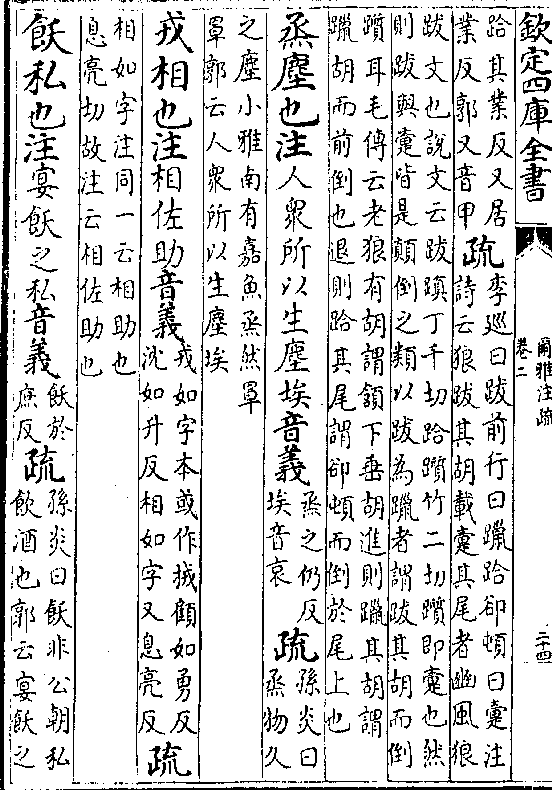 欽定四庫全書
爾雅注疏
卷二
二十四
跲其業反又居
業反郭又音甲
疏
李巡曰跋前行曰躐跲卻頓曰疐注
詩云狼跋其胡載疐其尾者豳風狼
跋文也說文云跋蹎丁千切跲躓竹二切躓即疐也然
則跋與疐皆是顛倒之類以跋為躐者謂跋其胡而倒
躓耳毛傳云老狼有胡謂頷下垂胡進則躐其胡謂
躐胡而前倒也退則跲其尾謂卻頓而倒於尾上也
烝塵也注人衆所以生塵埃音義
烝之仍反
埃音哀
疏
孫炎曰
烝物久
之塵小雅南有嘉魚烝然罩
罩郭云人衆所以生塵埃
戎相也注相佐助音義
戎如字本或作搣顧如勇反
沈如升反相如字又息亮反
疏
相如字注同一云相助也
息亮切故注云相佐助也
飫私也注宴飫之私音義
飫於
庶反
疏
孫炎曰飫非公朝私
飲酒也郭云宴飫之